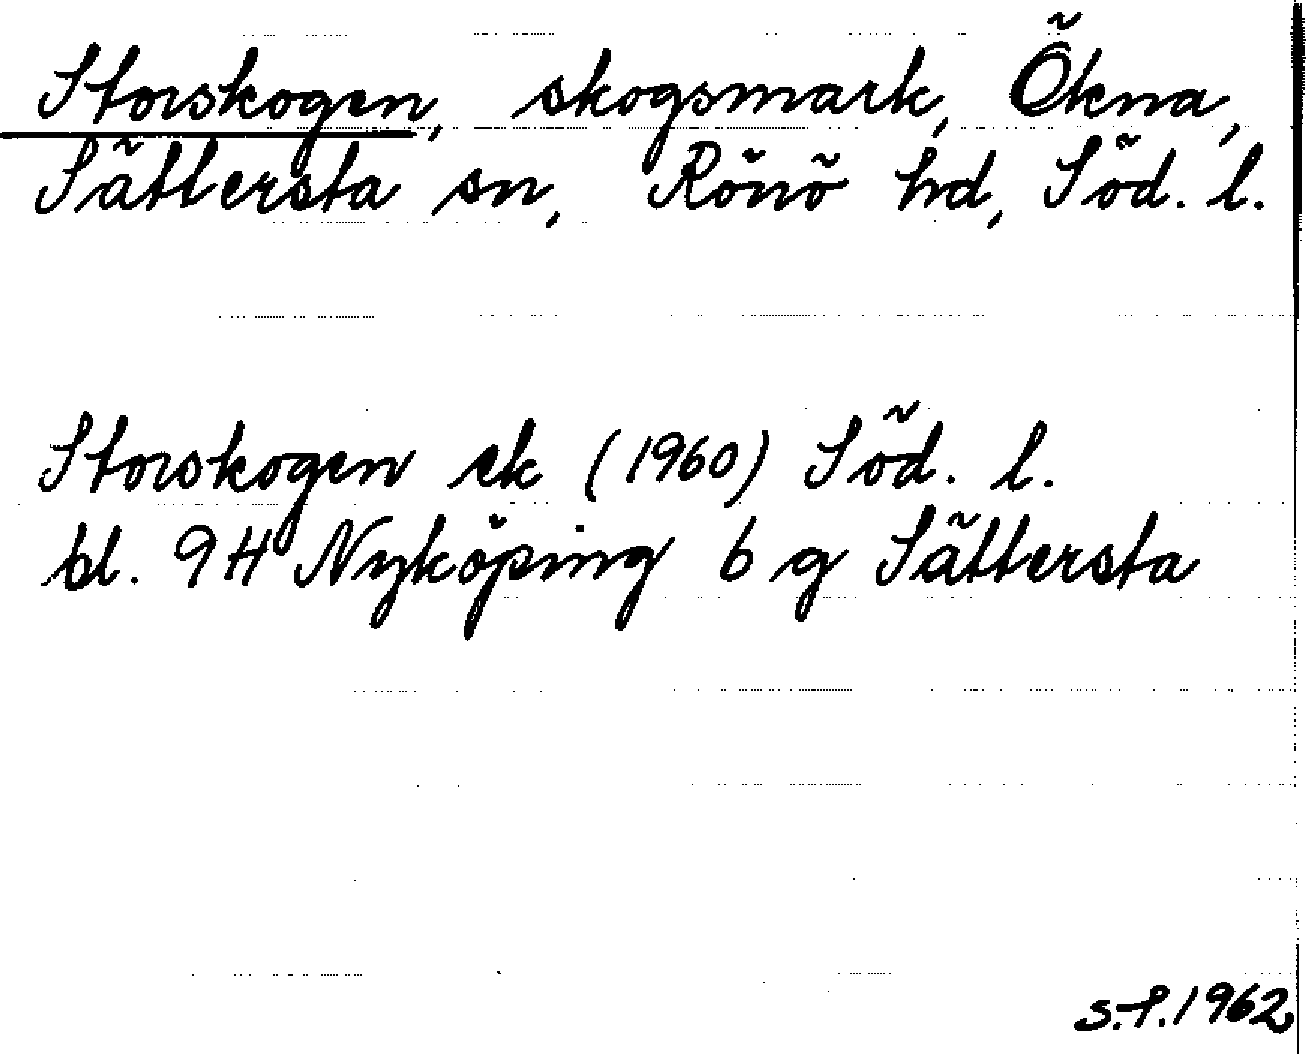 Storskogen, skogsmark, Ökna,
Sättersta sn, Rönö hd, Söd. l.
Storskogen ek (1960) Söd. l.
bl. 9H Nyköping 6 g Sättersta
S.P. 1962